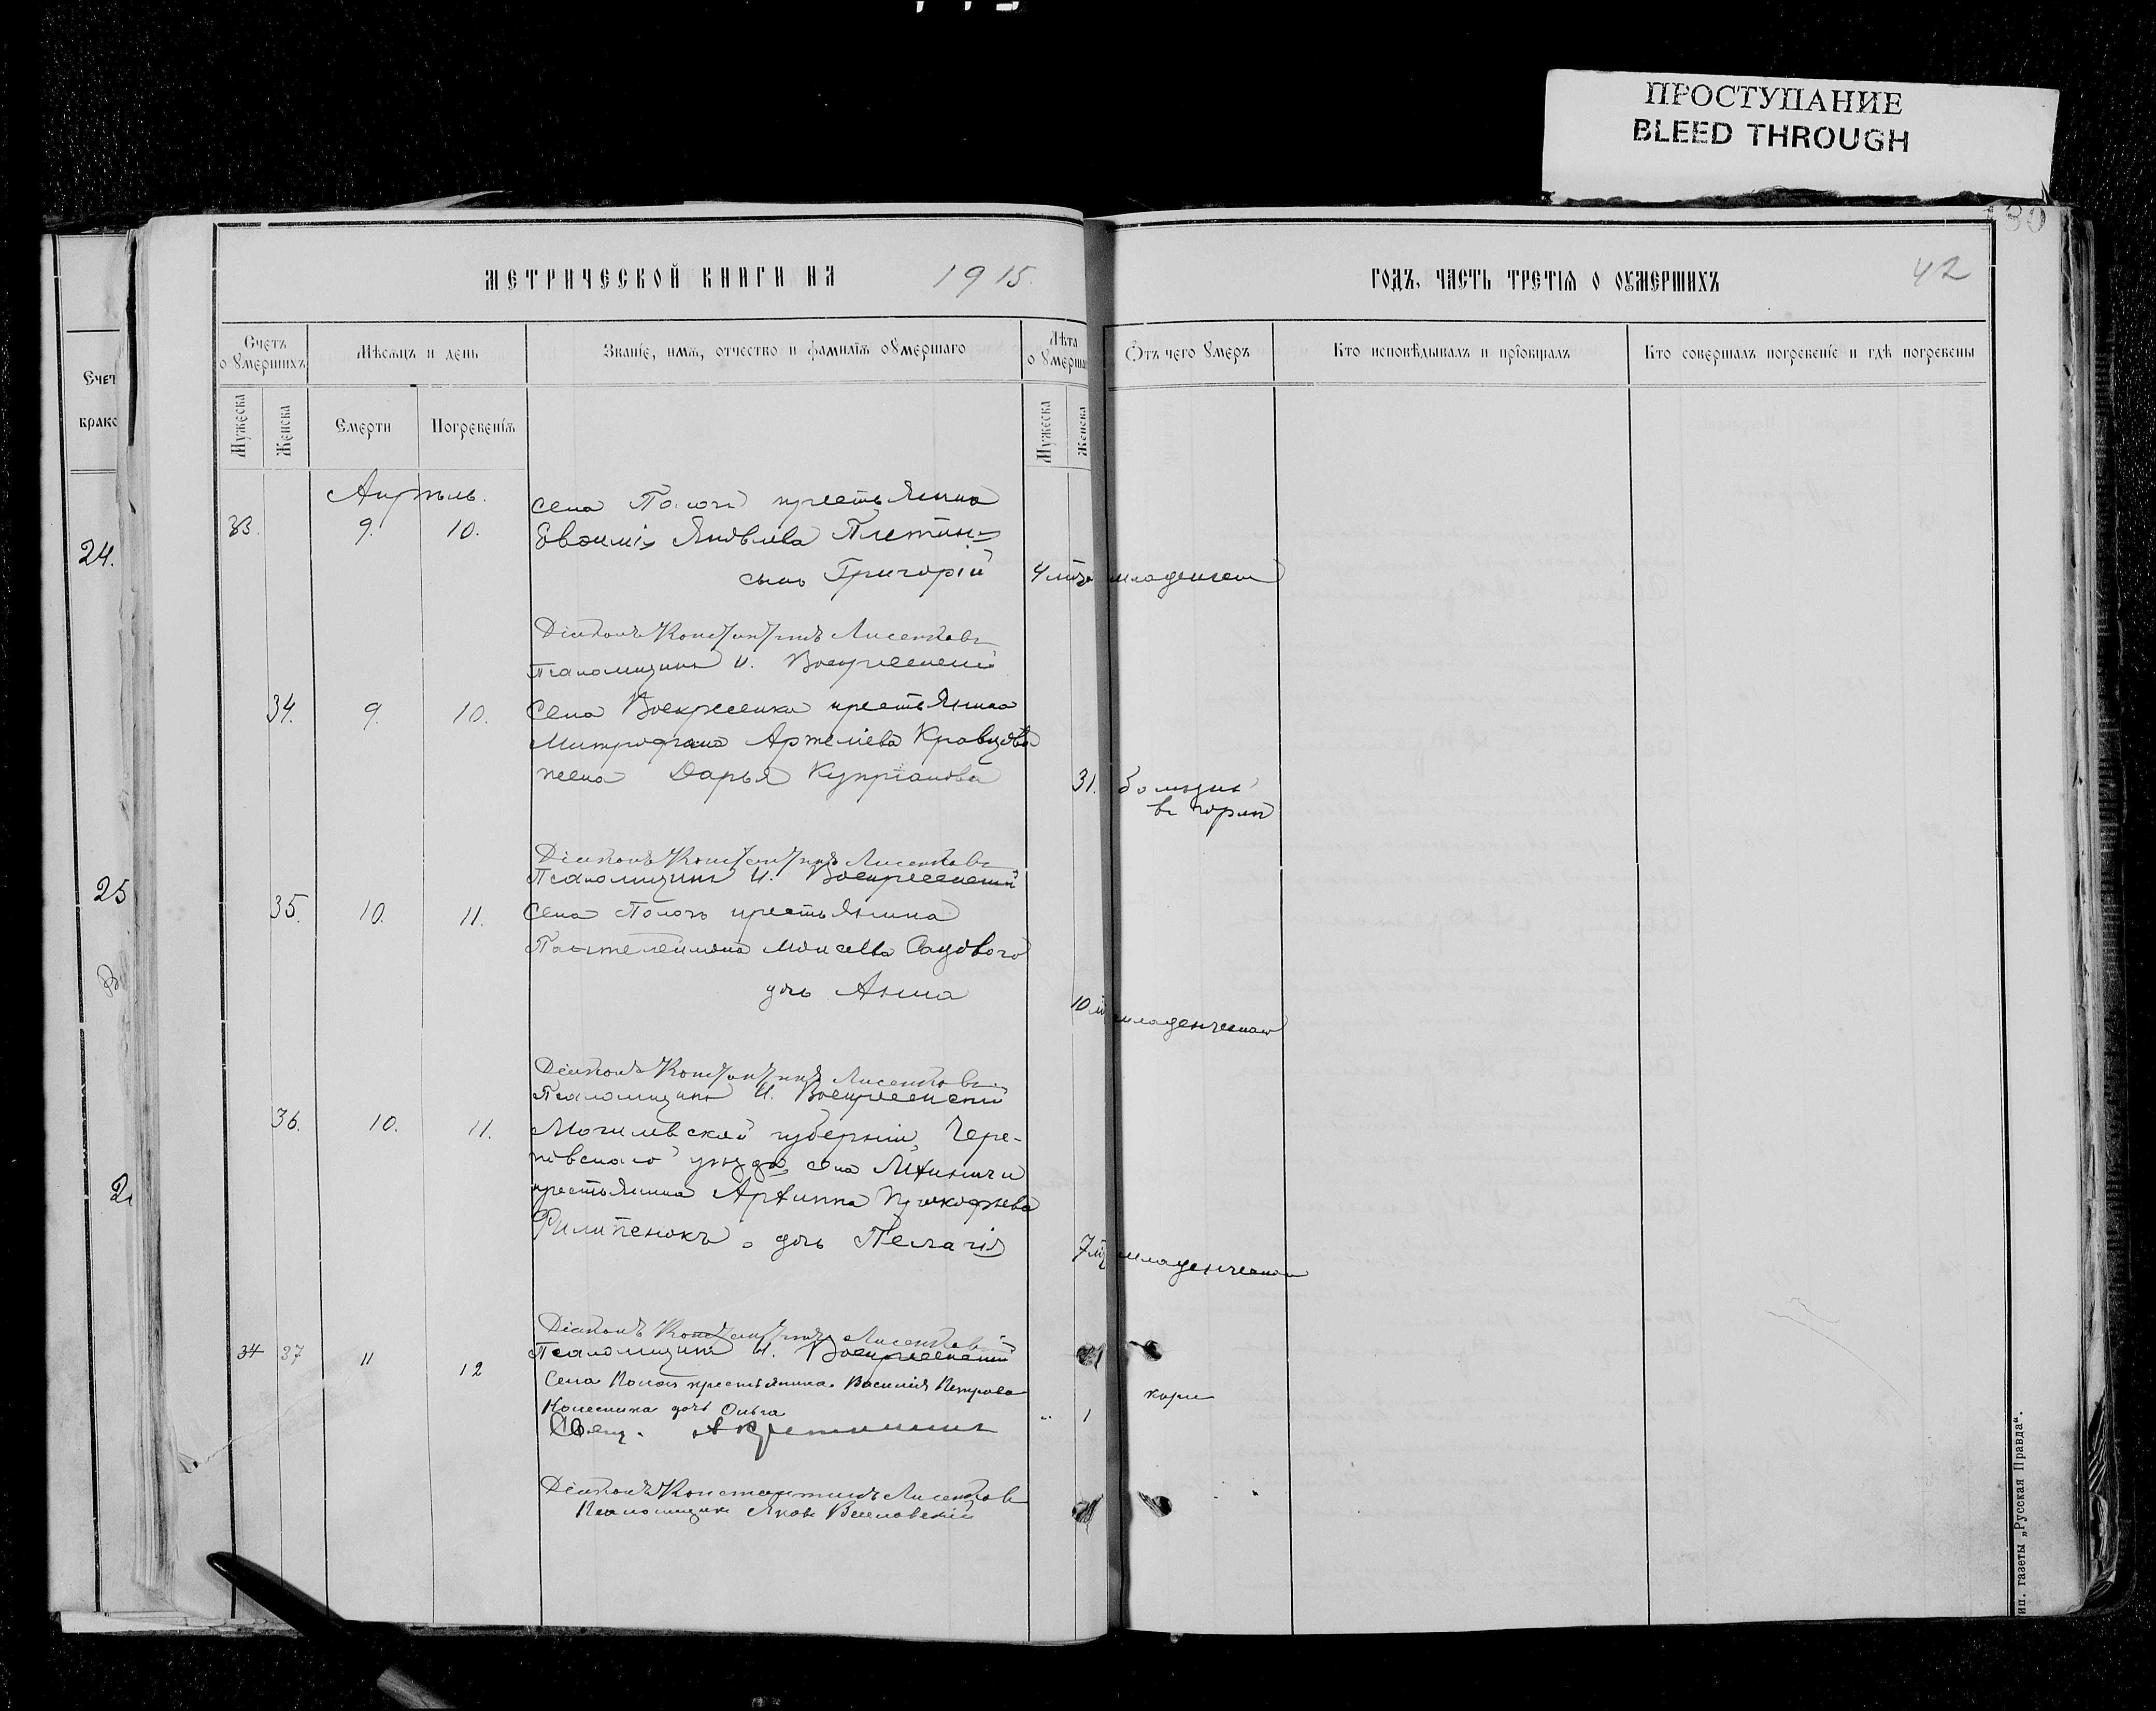 ПРОСТУПАНИЕ
BLEED THROUGH
130
МЕТРИЧЕСКОЙ КНИГИ НА 1915.
ГОДЪ, ЧАСТЬ ТРЕТІЯ О ОУМЕРШИХЪ
42
Счетъ
оумершихъ
Мѣсяцъ и день
Званіе, имя, отчество и фамилія оумершаго
Лѣта
оумерша
Отъ чего умеръ
Кто исповѣдывалъ и пріобщалъ
Кто совершалъ погребеніе и гдѣ погребены
Мужеска
Женска
Смерти
Погребенія
Мужеска
Женска
Счет
24.
25
Апрѣль.
33. 9. 10.
Села Пологъ крестьянина
Евѳимія Яковлева
сынъ Григорій
4 младенческой
Діаконъ Константинъ Лисенковъ
Псаломщикъ И. Воскресенскій
34. 9. 10.
Села Воскресенки крестьянина
Митрофана Кравцова
жена Дарья Купріанова
31. Болѣзни
въ горлѣ
Діаконъ Константинъ Лисенковъ
Псаломщикъ И. Воскресенскій
35. 10. 11.
Села Пологъ крестьянина
Пантелеимона Моисеева Садоваго
дочь Анна
10 м младенческой
Діаконъ Константинъ Лисенковъ
Псаломщикъ И. Воскресенскій
36. 10. 11.
Могилевской губерніи, Чере-
ковскаго уѣзда села
крестьянина Архиппа Прокофьева
Филипенокъ, дочь Пелагія
7 м младенческой
Діаконъ Константинъ Лисенковъ
Псаломщикъ И. Воскресенскій
34 37 11 12
Села Пологъ крестьянина Василія Петрова
Колесника дочь Ольга
" 1 кори
Свящ.
Діаконъ Константинъ Лисенковъ
Псаломщикъ Яковъ
ип. газеты „Русская Правда“.